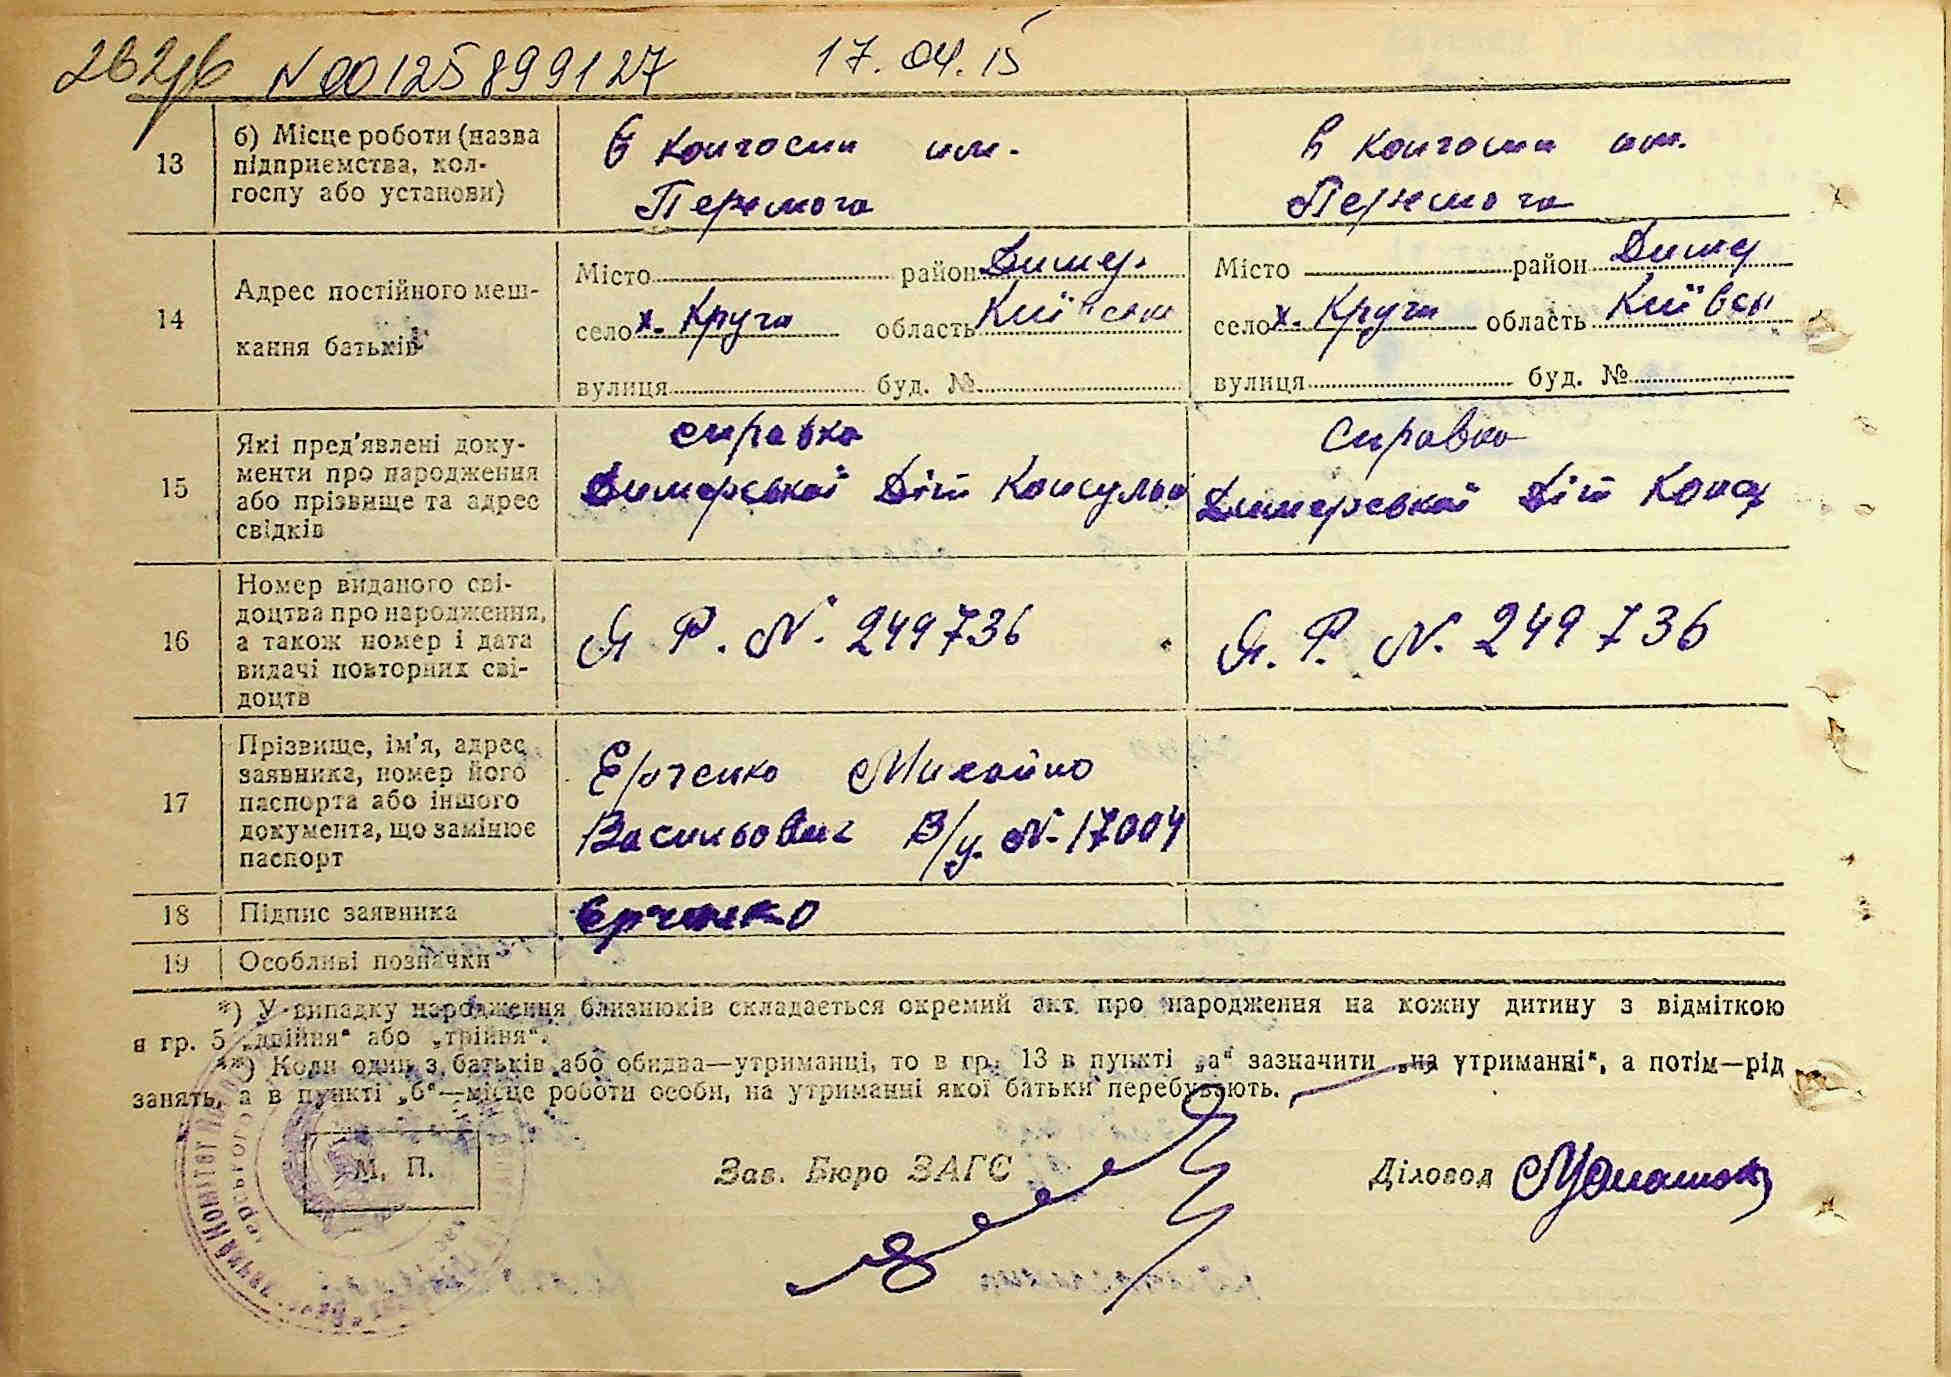 N 00125899127 17.04.15
13
б) Місце роботи (назва підприємства, колгоспу або установи)
в колгоспи им. Перемога
в колгоспи им. Перемога
14
Адрес постійного мешкання батьків
Місто район Димер.
село х. Круча область Київськ
вулиця буд. №
Місто район Димер
село х. Круча область Київсь
вулиця буд. №
15
Які пред'явлені документи про народження або прізвище та адрес свідків
справка
Димерської Діт Консульт
справка
Димерської Діт Конс
16
Номер виданого свідоцтва про народження, а також номер і дата видачі повторних свідоцтв
Я Р. N. 249736
Я. Р. N. 249736
17
Прізвище, ім'я, адрес заявника, номер його паспорта або іншого документа, що замінює паспорт
Ерченко Михайло
Васильович В/у. N. 17004
18
Підпис заявника
Ерченко
19
Особливі позначки
*) У випадку народження близнюків складається окремий акт про народження на кожну дитину з відміткою
в гр. 5 „двійня“ або „трійня“.
**) Коли один з батьків або обидва—утриманці, то в гр. 13 в пункті „а“ зазначити „на утриманні“, а потім—рід
занять, а в пункті „б“—місце роботи особи, на утриманні якої батьки перебувають.
М. П.
Зав. Бюро ЗАГС
Діловод